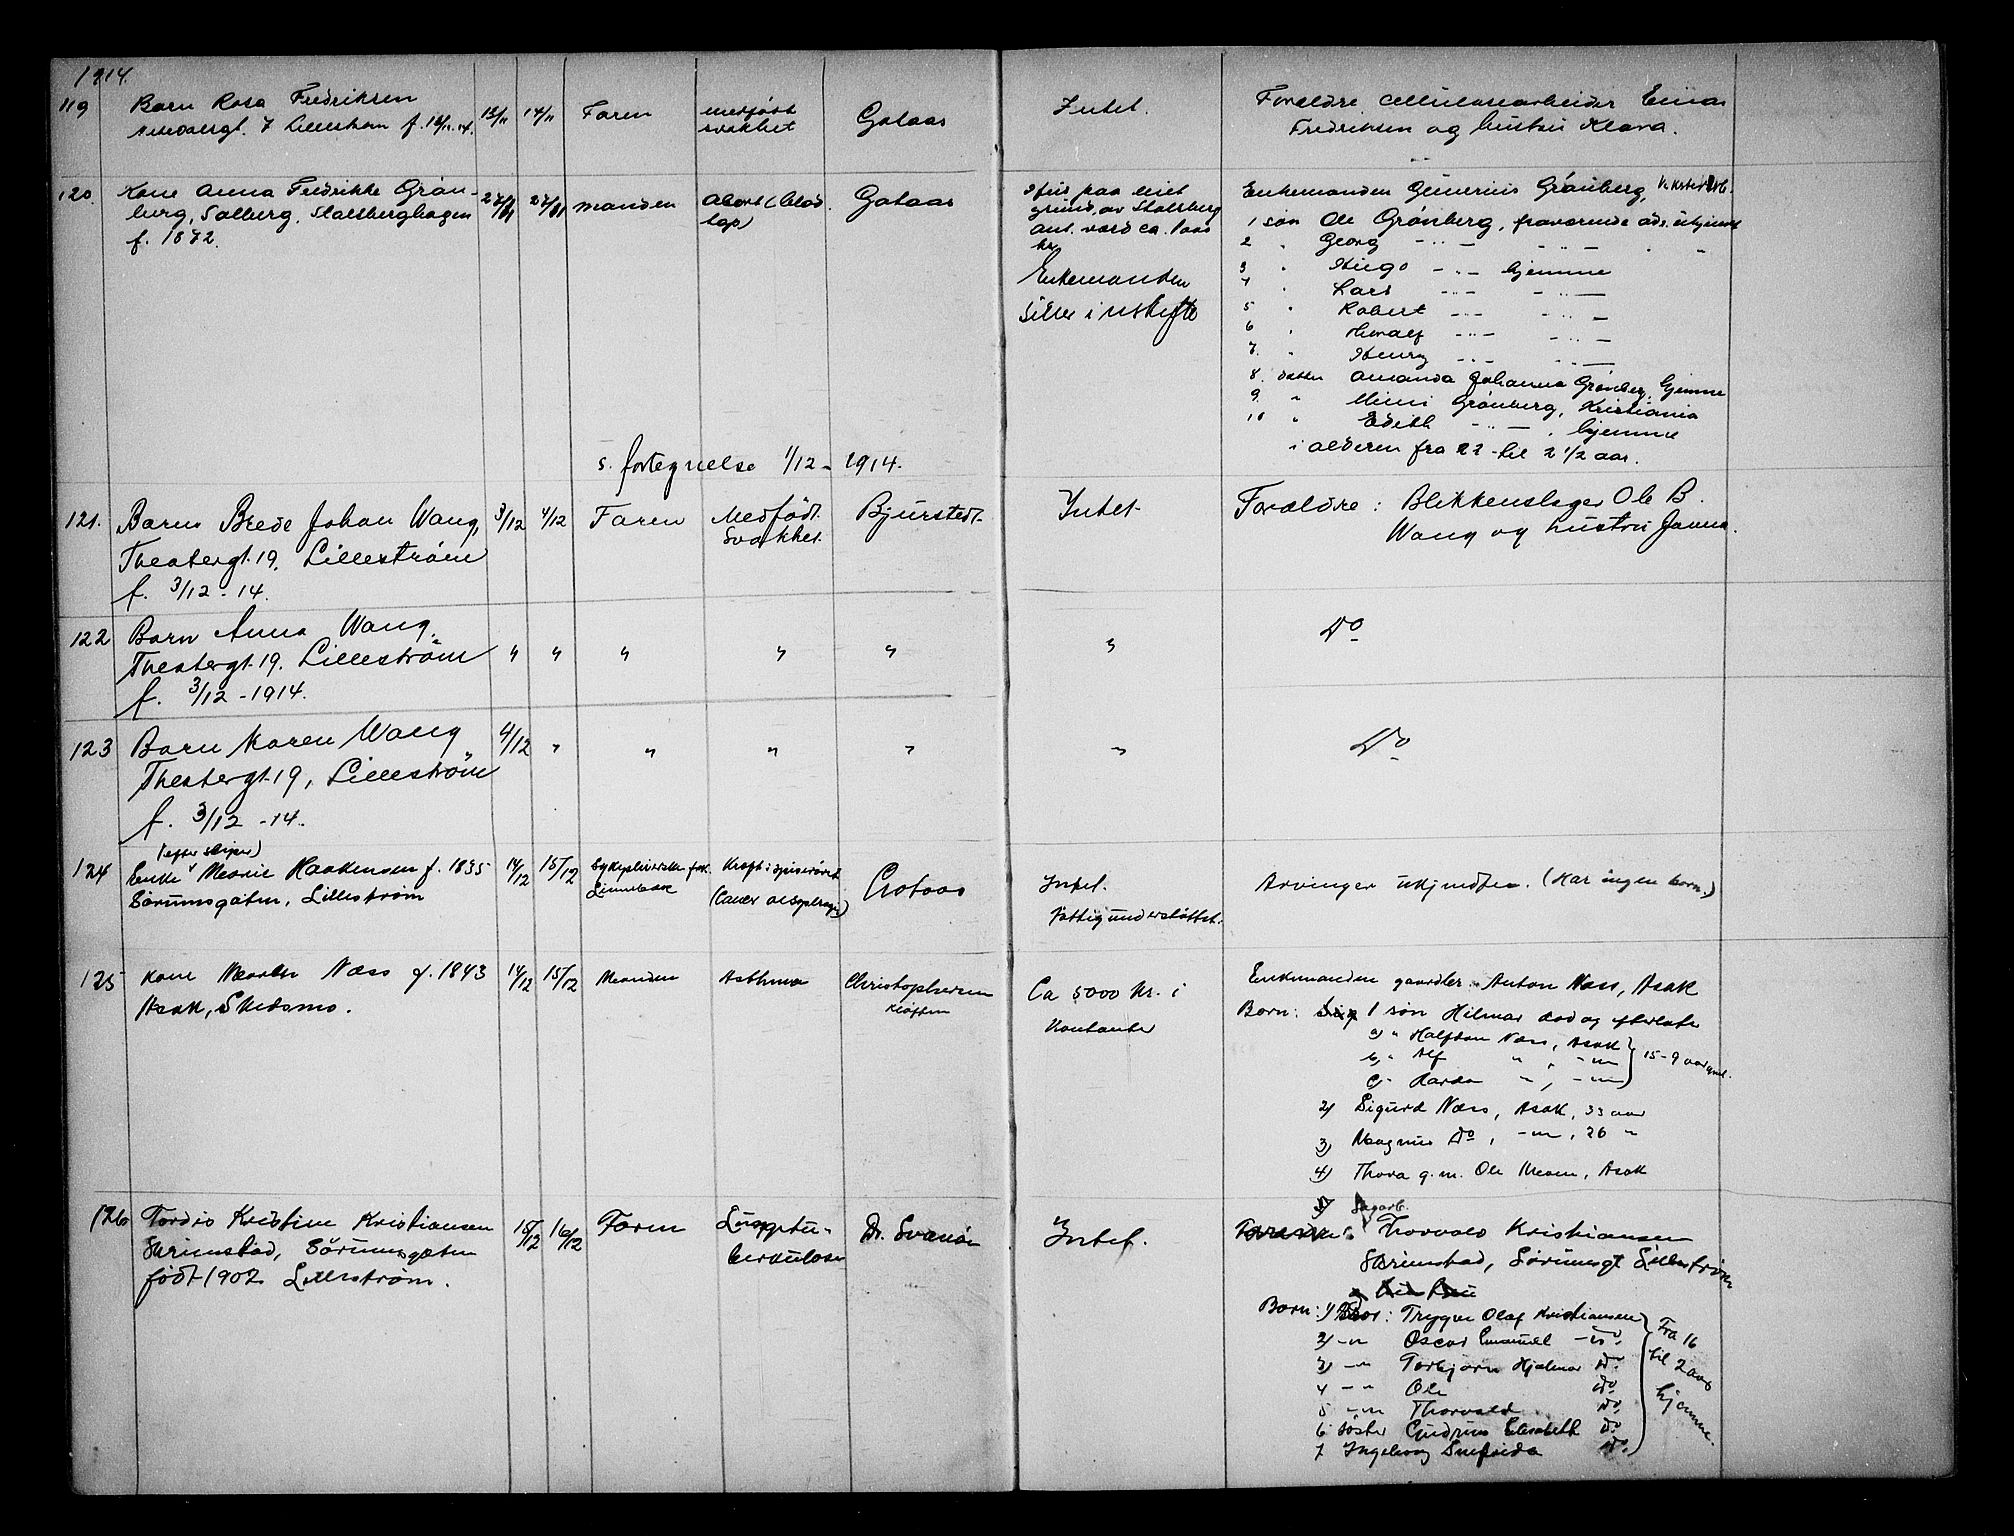 1914.
119 Barn Rosa Fredriksen 13/11 14/11 Faren medfødt Gotaas Intet. Forældre cellulosearbeider Einar
7 Lillestrøm f. 12/11.14. svakhet Fredriksen og hustru Klara.
120. Kone Anna Fredrikke Grøn- 27/11 27/11 manden Abort (blod Gotaas Enkemanden Grønberg,
berg, Solberg, Stalsberghagen tap) grund, av Stalsberg 1 søn Ole Grønberg, fraværende adr. ukjendt
f. 1872. ant. værd ca. 1000 2 " Georg -"- -"-
kr. 3 " Hugo -"- hjemme
Enkemanden 4 " Lars -"- -"-
sitter i uskifte 5 " Robert -"- -"-
6 " -"- -"-
7. " Henry -"- -"-
8. datter Amanda Johanna Grønberg, hjemme
9. " Mimi Grønberg, Kristiania
10 " Edith -"-, hjemme
i alderen fra 22 til 2 1/2 aar.
s. fortegnelse 1/12 - 1914.
121. Barn Brede Johan Wang, 3/12 4/12 Faren Medfødt Bjurstedt. Intet Forældre: Blikkenslager Ole B.
Theatergt. 19, Lillestrøm svakhet. Wang og hustru Janna.
f. 3/12 - 14.
122 Barn Anna Wang. Do
Theatergt. 19. Lillestrøm " " " " " "
f. 3/12 - 1914.
123 Barn Karen Wang 4/12 " " " " " Do
Theatergt. 19, Lillestrøm
f. 3/12 - 14.
124 Enke Marie Haakensen f. 1835 14/12 15/12 Sykepleierske frk. Kræft i spiserøret Gotaas Intet. Arvinger ukjendte. (Har ingen barn.)
Sørumsgaten, Lillestrøm (Cancer oesophagi) Fattigunderstøttet.
125 Kone Marthe Næss f. 1843 14/12 15/12 Manden Asthma Christophersen Ca 5000 kr. i Enkemanden gaardbr. Anton Næss, Asak
Asak, Skedsmo. Kløften Kontanter Barn: 1 søn Hilmar død og efterlate
a) " Halfdan Næss, Asak } 15-9 aar gml.
b) " Alf " , -"-
c) " Harda " , -"-
2) Sigurd Næss, Asak, 33 aar
3) Magnus Do, -"-, 26 "
4) Thora g. m. Ole Moen, Asak
126 Tordis Kristine Kristiansen 15/12 16/12 Faren Lungetu- Dr. Svanøe Intet. Thorvald Kristiansen
Skrimstad, Sørumsgaten berkulose Skrimstad, Sørumsgt Lillestrøm
født 1907 Lillestrøm.
Barn: 1) Bror: Trygve Olaf Kristiansen } Fra 16
2) -"- Oscar Emanuel -"- til 2 aar
3) -"- Torbjørn Hjalmar Do. hjemme.
4 -"- Ole Do
5 -"- Thorvald Do
6 søster Gudrun Elisabeth Do
7 Ingeborg Snefrida Do.